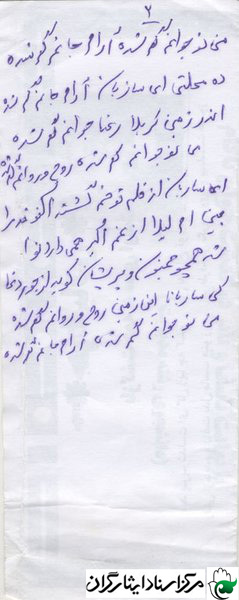 ۲
من نوجوانم گم شده آرام جانم گم شده
ده مهلتی ای ساربان آرام جانم گم شده
اندر زمین کربلا رعنا جوانم گم شده
من نوجوانم گم شده روح و روانم گم شده
ای ساربان از
بینی ام لیلا از غم اکبر همی دارد نوا
شد همچو مجنون و پریشان گوید از جور
کی ساربانا این زمین روح و روانم گم شده
من نوجوانم گم شده آرام جانم گم شده
مرکز اسناد ایثارگران